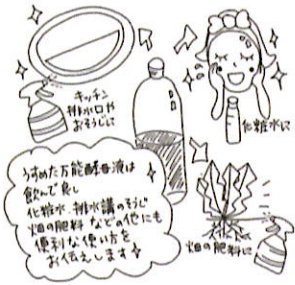 キッチン
排水口や
おそうじに
化粧水に
うすめた万能酵母液は
飲んで良し
化粧水、排水講のそうじ
畑の肥料 などの他にも
便利な使い方を
お伝えします
畑の肥料に